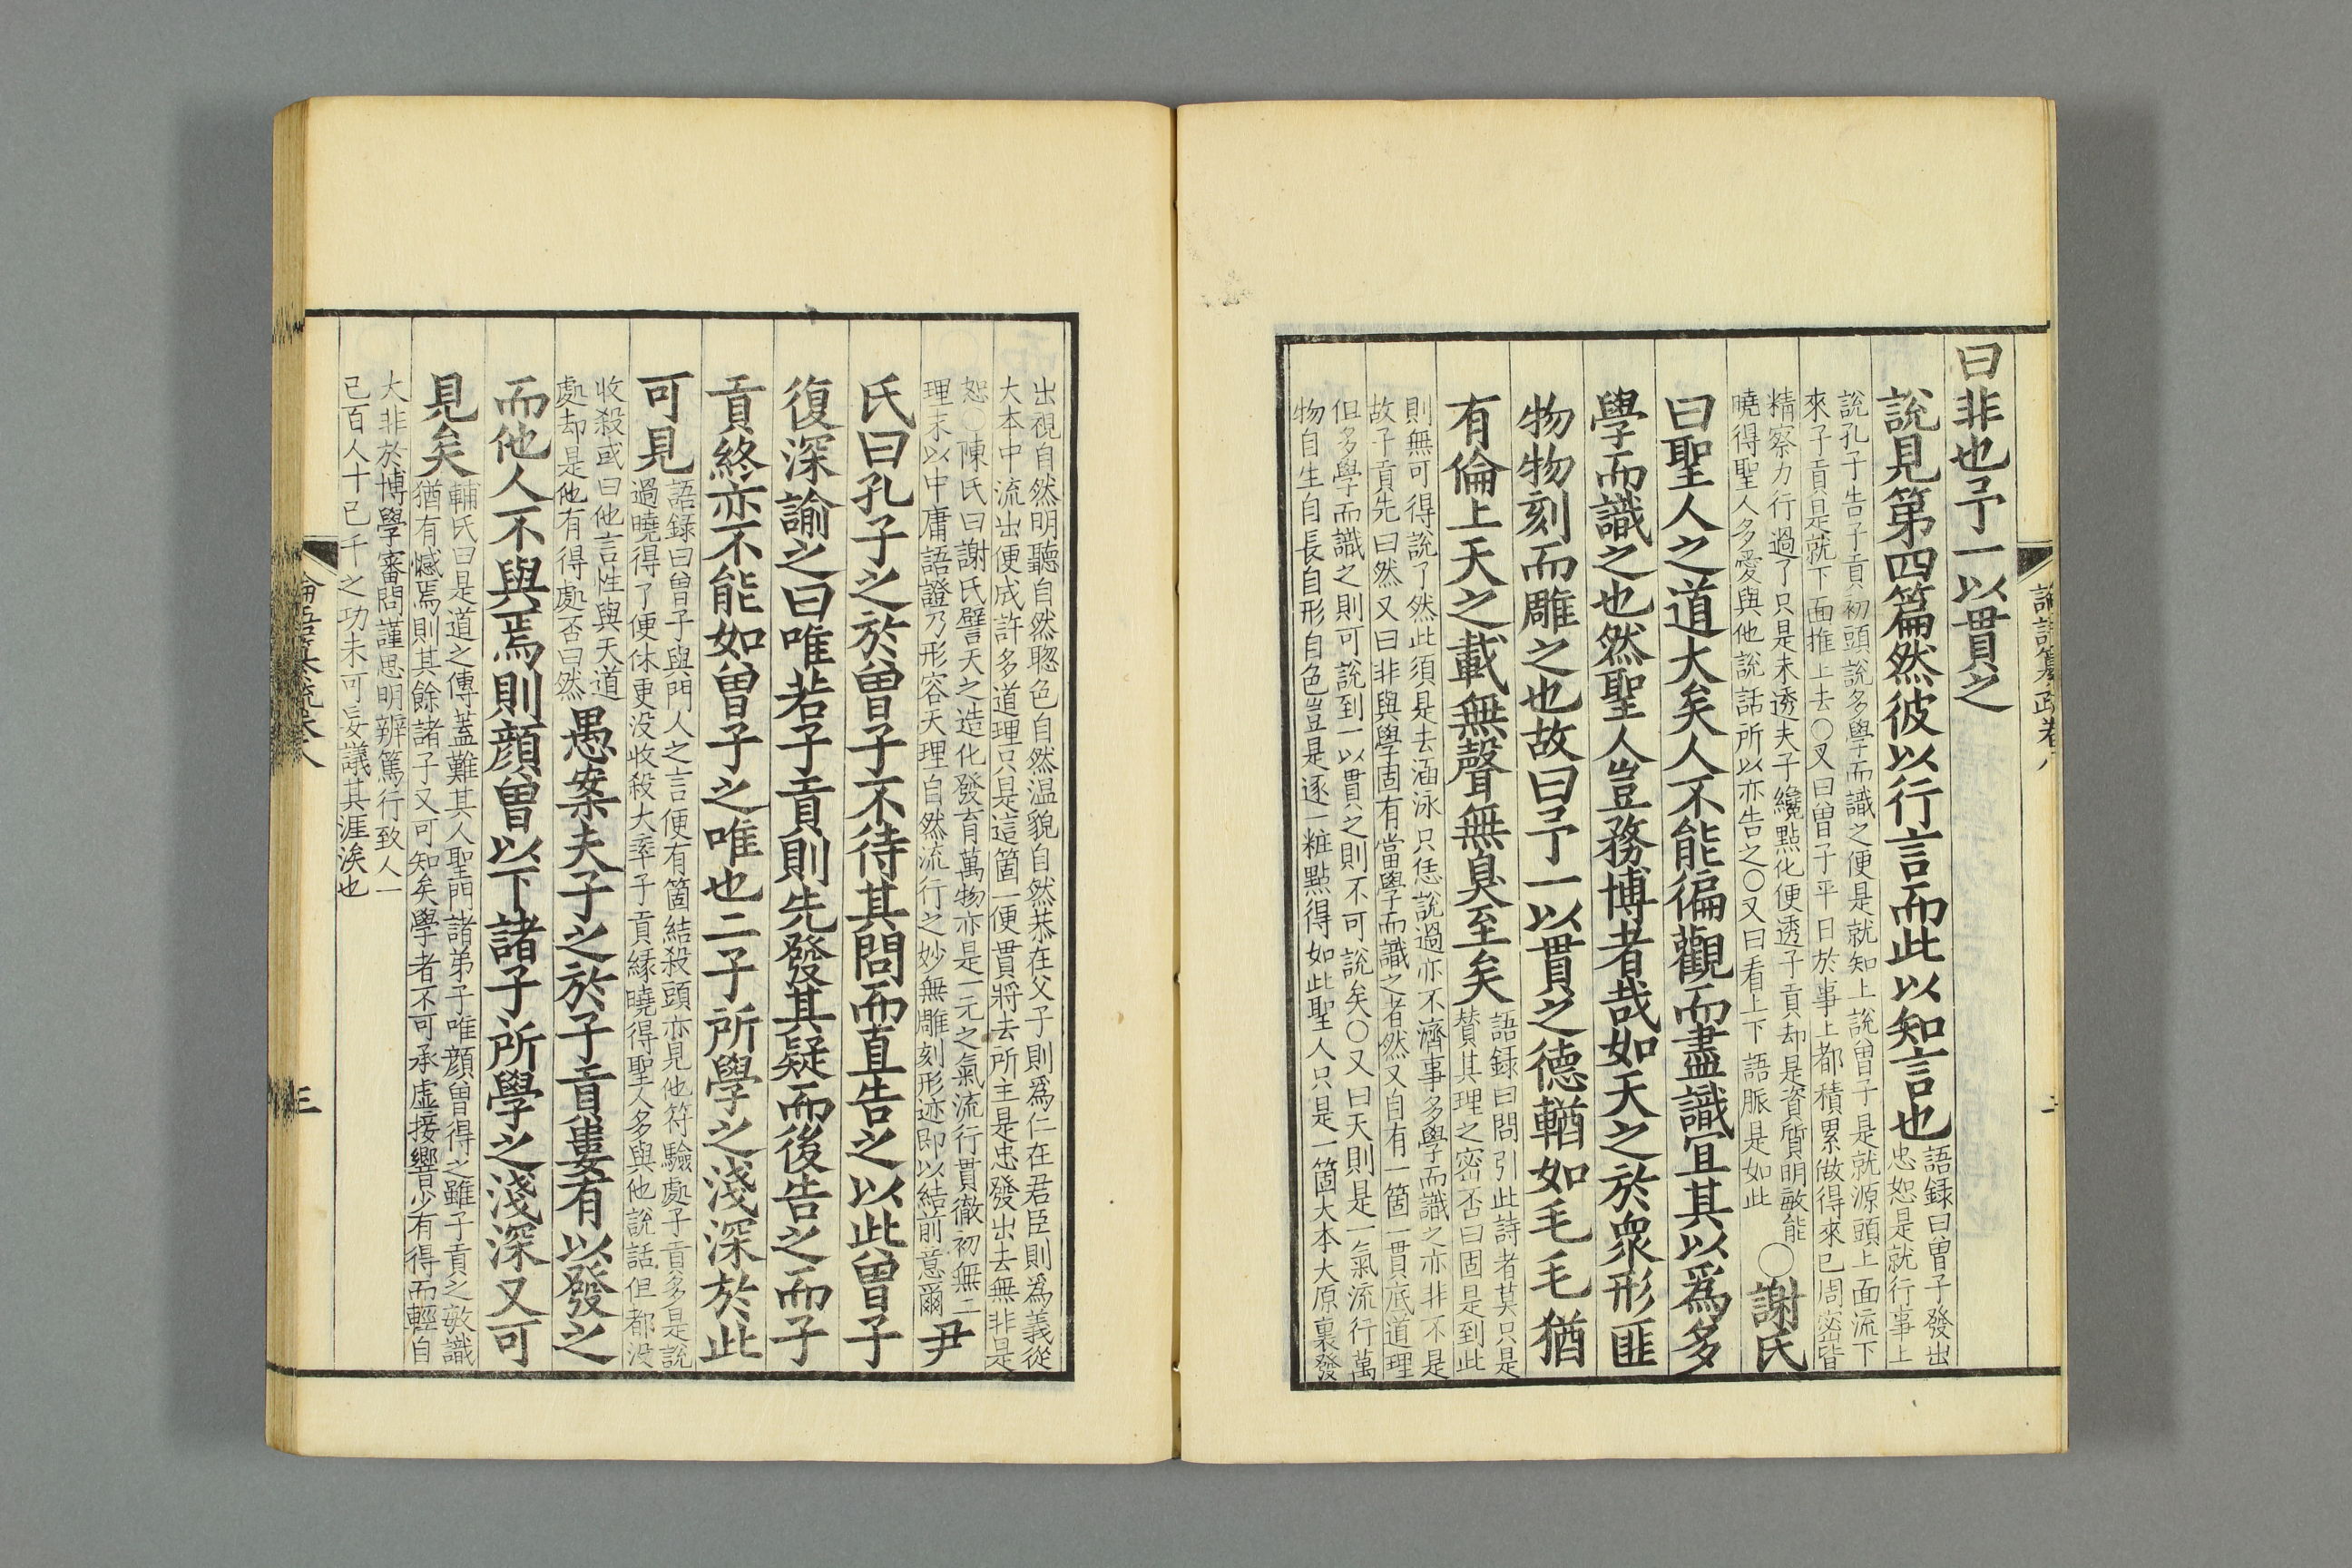 論語纂疏卷八
二
曰非也予一以貫之
說見第四篇然彼以行言而此以知言也
語録曰曾子發出
忠恕是就行事上
說孔子告子貢初頭說多學而識之便是就知上說曾子是就源頭上面流下
來子貢是就下面推上去○又曰曾子平日於事上都積累做得來已周密皆
精察力行過了只是未透夫子纔點化便透子貢却是資質明敏能
曉得聖人多愛與他說話所以亦告之○又曰看上下語脈是如此
○謝氏
曰聖人之道大矣人不能徧觀而盡識宜其以爲多
學而識之也然聖人豈務博者哉如天之於衆形匪
物物刻而雕之也故曰予一以貫之德輶如毛毛猶
有倫上天之載無聲無臭至矣
語録曰問引此詩者莫只是
賛其理之密否曰固是到此
則無可得說了然此須是去涵泳只恁說過亦不濟事多學而識之亦非不是
故子貢先曰然又曰非與學固有當學而識之者然又自有一箇一貫底道理
但多學而識之則可說到一以貫之則不可說矣○又曰天則是一氣流行萬
物自生自長自形自色豈是逐一粧點得如此聖人只是一箇大本大原裏發
出視自然明聽自然聦色自然温貌自然恭在父子則爲仁在君臣則爲義從
大本中流出便成許多道理只是這箇一便貫將去所主是忠發出去無非是
恕○陳氏曰謝氏譬天之造化發育萬物亦是一元之氣流行貫徹初無二
理末以中庸語證乃形容天理自然流行之妙無雕刻形迹即以結前意爾
尹
氏曰孔子之於曾子不待其問而直告之以此曾子
復深諭之曰唯若子貢則先發其疑而後告之而子
貢終亦不能如曾子之唯也二子所學之淺深於此
可見
語録曰曾子與門人之言便有箇結殺頭亦見他符驗處子貢多是說
過曉得了便休更没收殺大率子貢縁曉得聖人多與他說話但都没
收殺或曰他言性與天道
處却是他有得處否曰然
愚案夫子之於子貢屢有以發之
而他人不與焉則顔曾以下諸子所學之淺深又可
見矣
輔氏曰是道之傳蓋難其人聖門諸弟子唯顔曾得之雖子貢之敏識
猶有憾焉則其餘諸子又可知矣學者不可承虚接響少有得而輕自
大非於博學審問謹思明辨篤行致人一
己百人十己千之功未可妄議其涯涘也
論語纂疏卷八
三